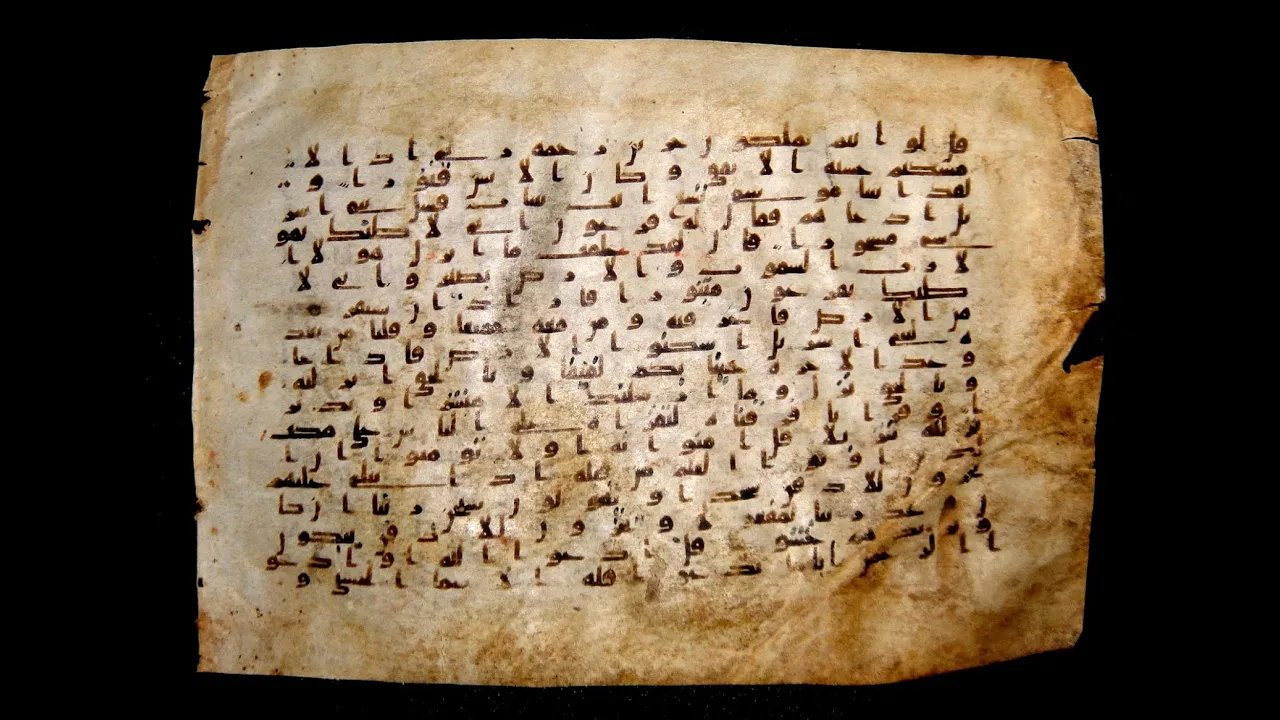 قل لو انتم تملكون خزين رحمه ربى اذا لا
مسكتم خشيه الانفق وكان الانسن قتورا و
لقد اتينا موسى تسع ايت بينت فسل بنى اس
رايل اذ جاهم فقال له فرعون انى لاظنك يمو
سى مسحورا قال لقد علمت ما انزل هولا ا
لا رب السموت والارض بصير وانى لا
ظنك يفرعون مثبورا فاراد ان يستفزهم
من الارض فاغرقنه ومن معه جميعا وقلنا من بعد
ه لبنى اسريل اسكنوا الارض فاذا جا
وعد الاخره جينا بكم لفيفا وبالحق انزلنه
وبالحق نزل وما ارسلنك الا مبشرا ونذير
ا وقرانا فرقنه لتقراه على الناس على مكث
ونزلنه تنزيلا قل امنوا به اولا تومنوا ان ا
لذين اوتوا العلم من قبله اذا يتلى عليهم
يخرون للاذقن سجدا ويقولون سبحن ربنا ان كا
ن وعد ربنا لمفعولا ويخرون للاذقن يبكون
ويزيدهم خشوعا قل ادعوا الله او ادعو
ا الرحمن ايا ما تدعوا فله الاسما الحسنى و